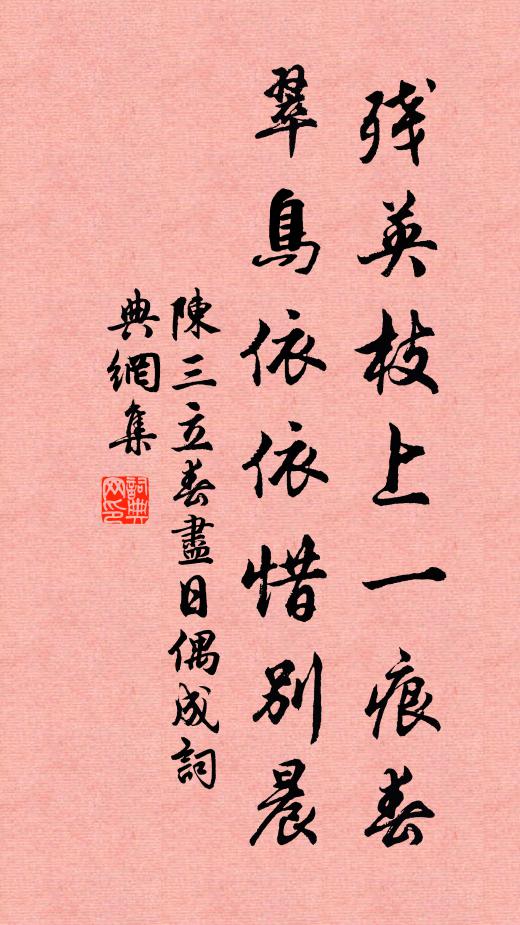 残英枝上一痕春
翠鳥依依惜別晨
陳三立春盡日偶成詞
典網集
詞典
网印